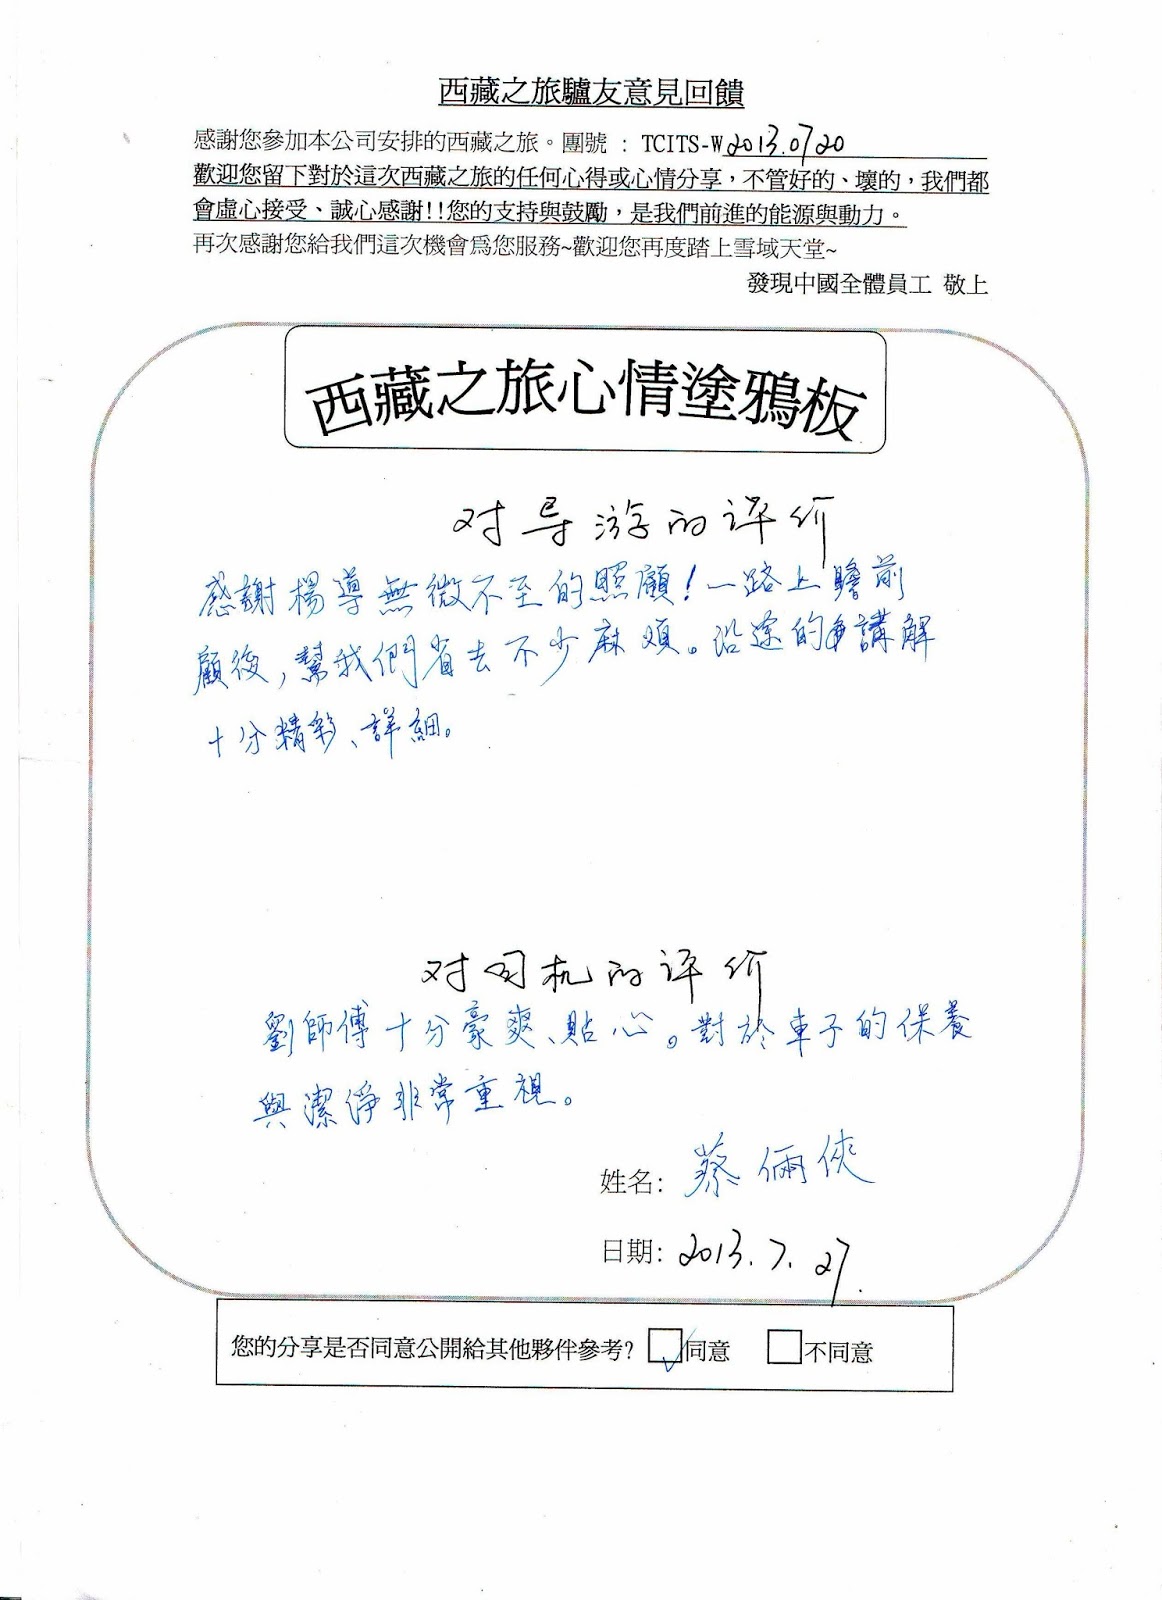 西藏之旅驢友意見回饋
感謝您參加本公司安排的西藏之旅。團號 : TCITS-W2013.0720
歡迎您留下對於這次西藏之旅的任何心得或心情分享，不管好的、壞的，我們都
會虛心接受、誠心感謝!!您的支持與鼓勵，是我們前進的能源與動力。
再次感謝您給我們這次機會爲您服務~歡迎您再度踏上雪域天堂~
發現中國全體員工 敬上
西藏之旅心情塗鴉板
对导游的评价
感謝楊導無微不至的照顧！一路上瞻前
顧後，幫我們省去不少麻煩。沿途的講解
十分精彩、詳細。
对司机的评价
劉師傅十分豪爽、貼心。對於車子的保養
與潔淨非常重視。
姓名: 蔡倆俠
日期: 2013.7.27.
您的分享是否同意公開給其他夥伴參考? 同意 不同意